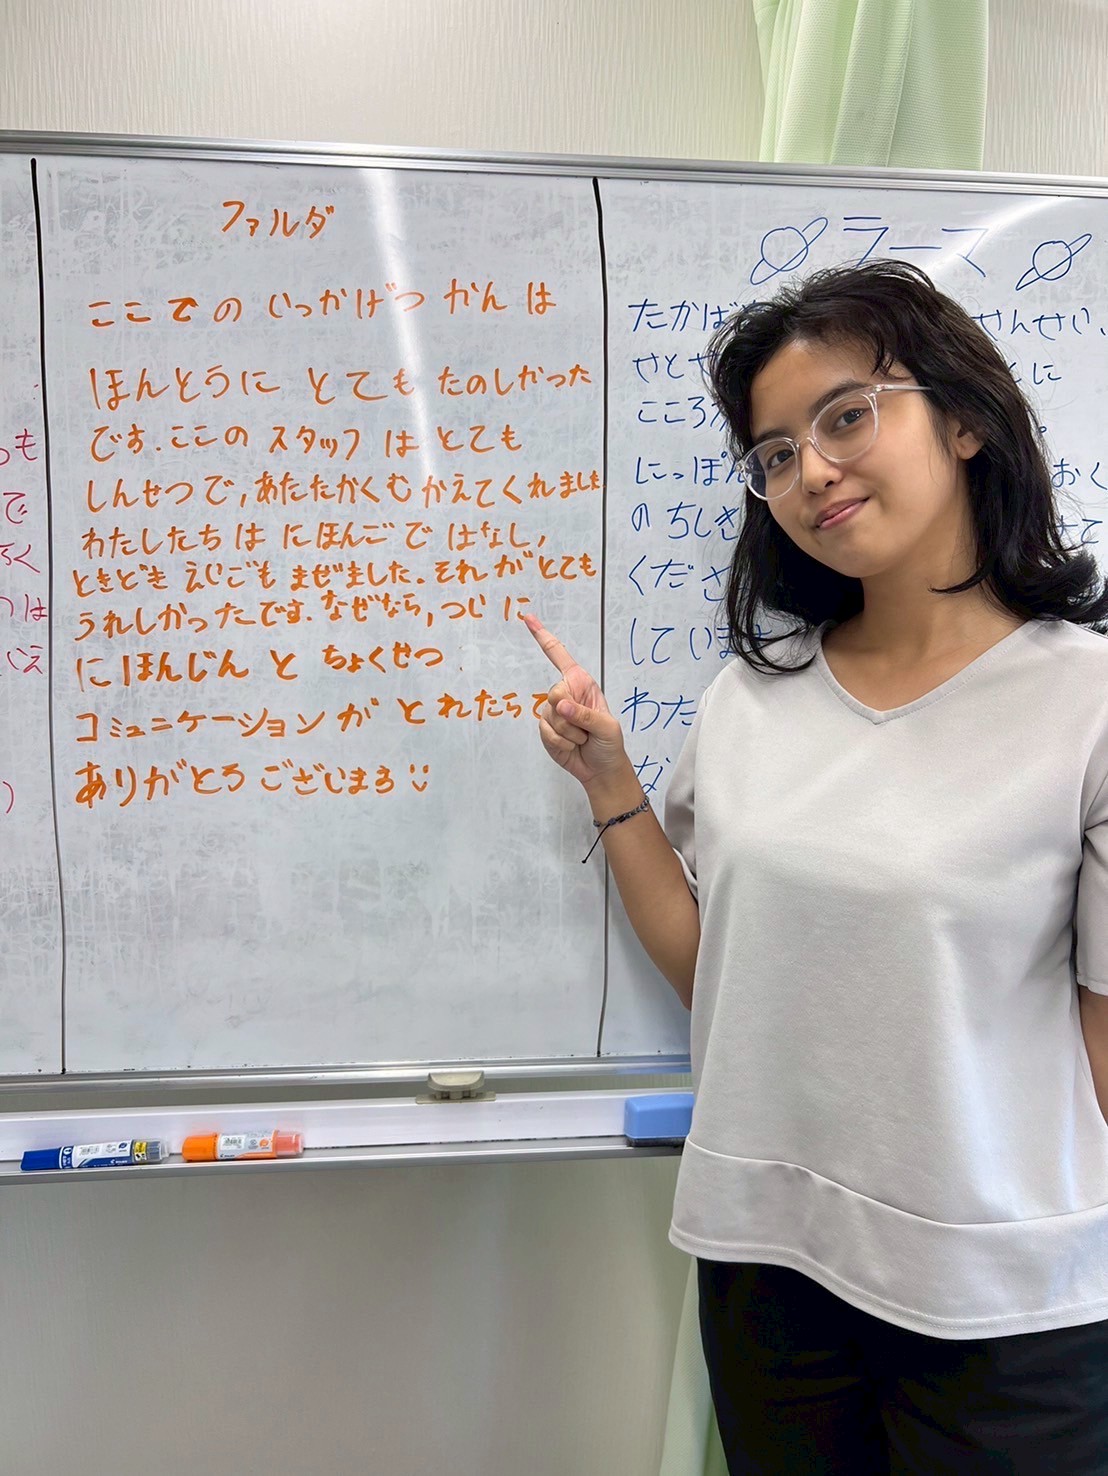 ファルダ
ここでの いっかげつ かん は
ほんとうに とても たのしかった
です.ここの スタッフ は とても
しんせつで,あたたかくむかえてくれました
わたしたち は にほんごで はなし,
ときどき えいごも まぜました.それが とても
うれしかったです.なぜなら,つじ に
にほんじん と ちょくせつ
コミュニケーションが とれたらで
ありがとろ ございまろ
ラーマ
たかば
せんせい、
さとせ
とに
こころ
にっぽん
おく
の ちしき
せて
くださ
していま
わた
な
も
で
らく
つは
いえ